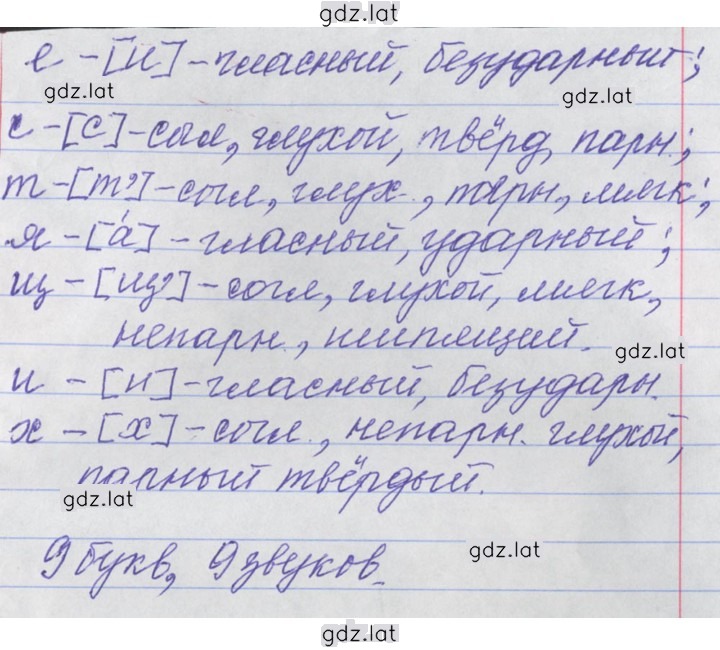 gdz.lat
е - [и] - гласный, безударный;
gdz.lat gdz.lat
с - [с] - согл, глухой, твёрд, парн.;
т - [т'] - согл, глух., парн, мягк;
я - [а́] - гласный, ударный;
щ - [щ'] - согл, глухой, мягк,
непарн., шипящий.
gdz.lat
и - [и] - гласный, безударн.
х - [х] - согл., непарн. глухой,
парный твёрдый.
gdz.lat
9 букв, 9 звуков.
gdz.lat
gdz.lat